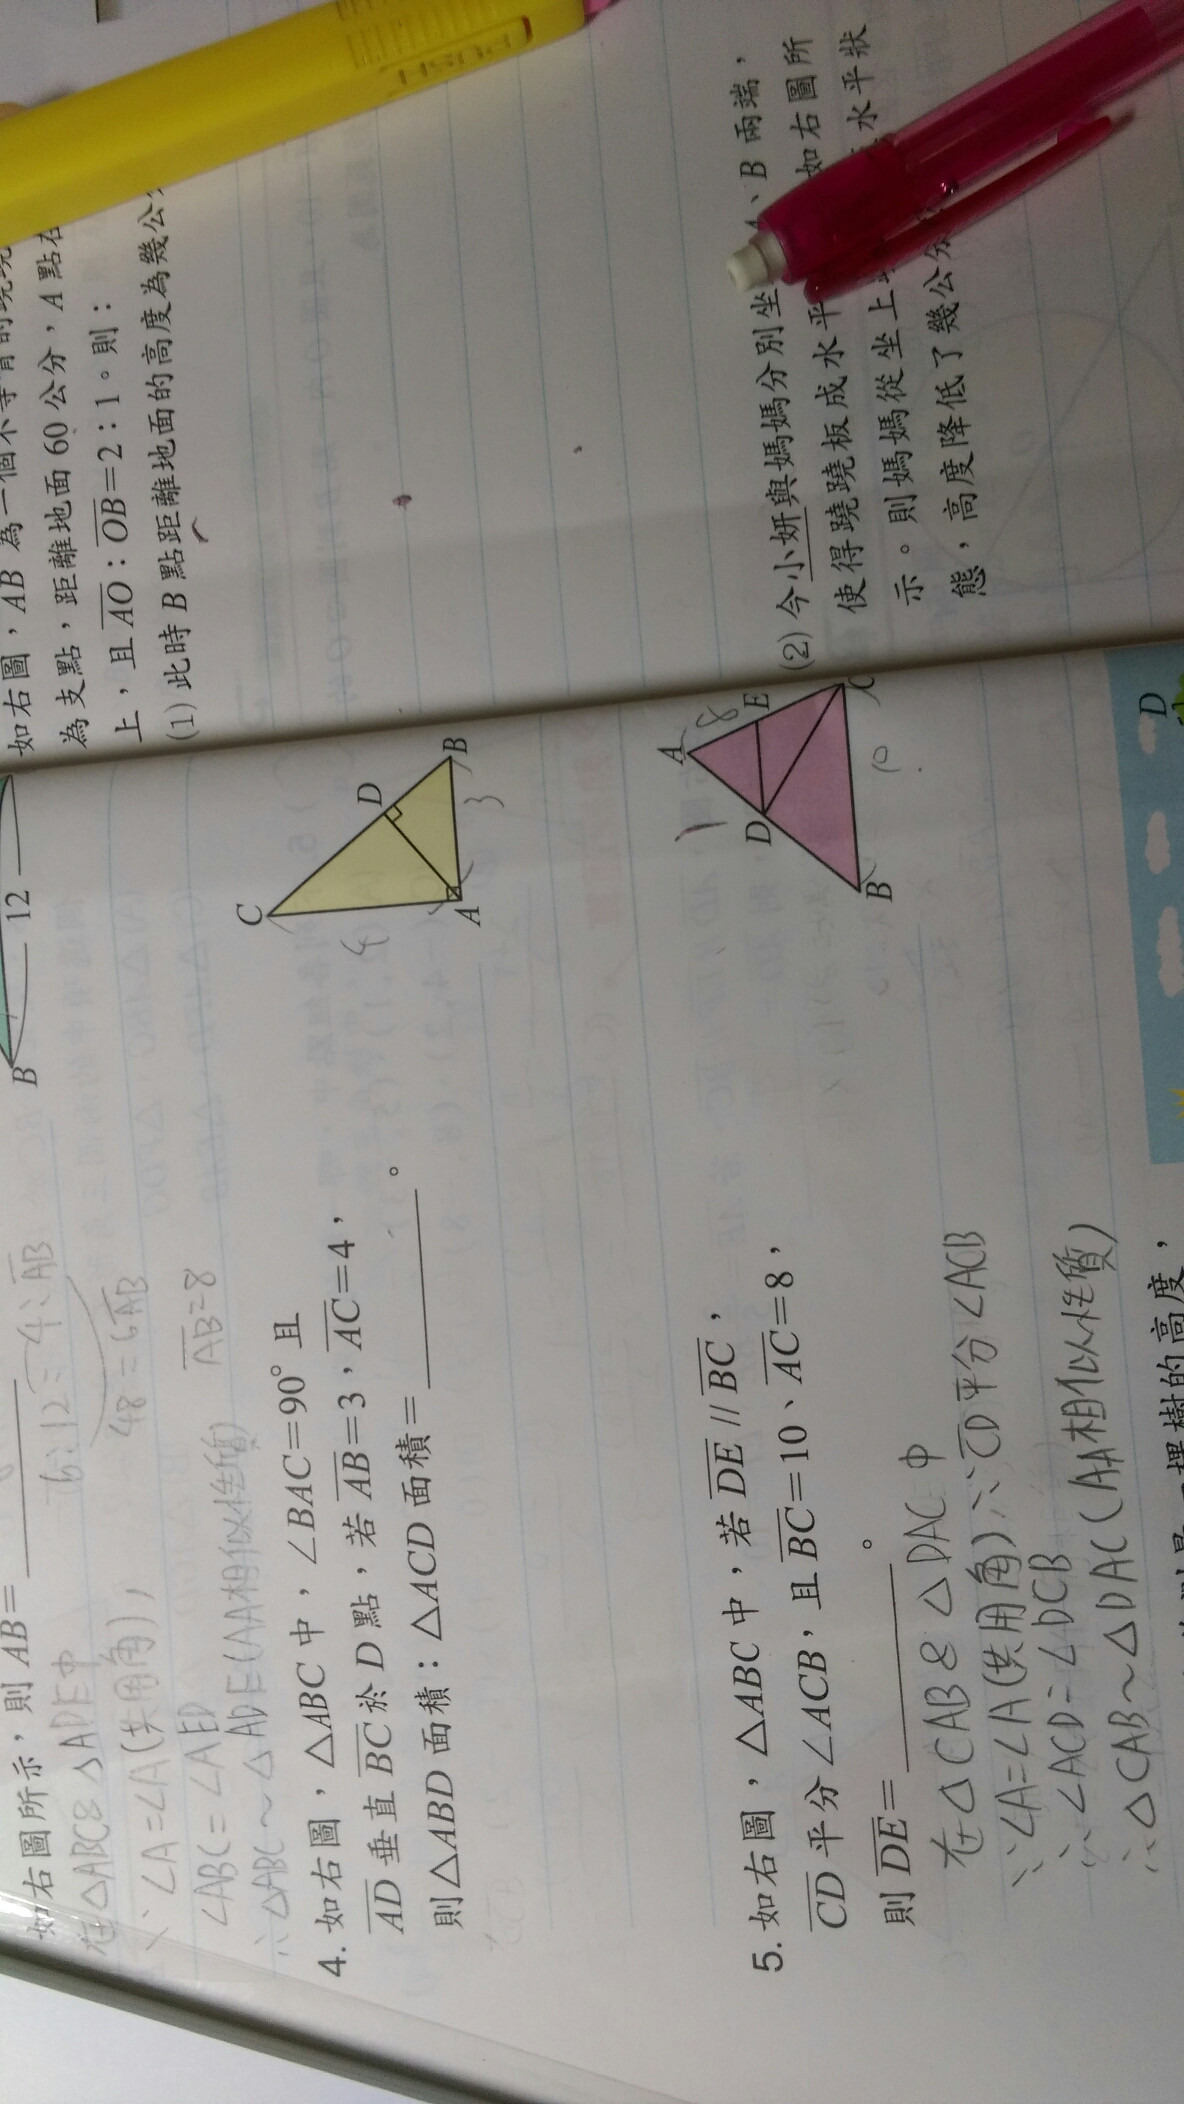 如右圖所示，則 AB=
在△ABC&△ADE中
∵∠A=∠A(共用角),
∠ABC=∠AED
∴△ABC~△ADE(AA相似性質)
6:12=4:AB
48=6AB
AB=8
B
12
4. 如右圖，△ABC 中，∠BAC=90° 且
AD 垂直 BC 於 D 點，若 AB=3，AC=4，
則△ABD 面積：△ACD 面積=＿＿＿。
C
D
B
A
4
3
5. 如右圖，△ABC 中，若 DE // BC，
CD 平分 ∠ACB，且 BC=10、AC=8，
則 DE=＿＿＿。
A
8
E
D
B
C
10
在△CAB&△DAC中
∵∠A=∠A(共用角)∵CD平分∠ACB
∴∠ACD=∠DCB
∴△CAB~△DAC(AA相似性質)
棵樹的高度，
D
如右圖，AB 為一個不等
為支點，距離地面 60 公分，A 點在
上，且 AO：OB=2：1。則：
(1) 此時 B 點距離地面的高度為幾公分
(2) 今小妍與媽媽分別坐、B 兩端，
使得蹺蹺板成水平如右圖所
示。則媽媽從坐上水平狀
態，高度降低了幾公分
PUSH